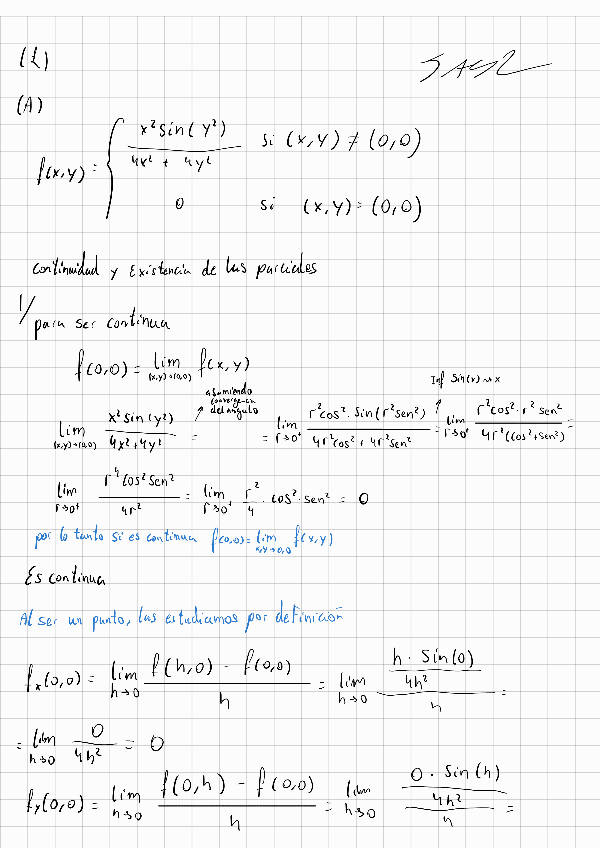 (L)
(A)
f(x,y) = { x² sin(y²) / 4x² + 4y² si (x,y) ≠ (0,0)
0 si (x,y) = (0,0)
continuidad y Existencia de las parciales
1/
para ser continua
f(0,0) = lim (x,y)→(0,0) f(x,y)
asumiendo convergencia del angulo
Inf Sin(x) ~ x
lim (x,y)→(0,0) x² sin(y²) / 4x² + 4y² = = lim r→0⁺ r² cos² · Sin(r² sen²) / 4r² cos² + 4r² sen² = lim r→0⁺ r² cos² · r² sen² / 4r² (cos² + sen²) =
lim r→0⁺ r⁴ cos² sen² / 4r² = lim r→0⁺ r²/4 · cos² · sen² = 0
por lo tanto si es continua f(0,0) = lim x,y→0,0 f(x,y)
Es continua
Al ser un punto, las estudiamos por definición
fx(0,0) = lim h→0 f(h,0) - f(0,0) / h = lim h→0 h · Sin(0) / 4h² / h =
= lim h→0 0 / 4h² = 0
fy(0,0) = lim h→0 f(0,h) - f(0,0) / h = lim h→0 0 · Sin(h) / 4h² / h =